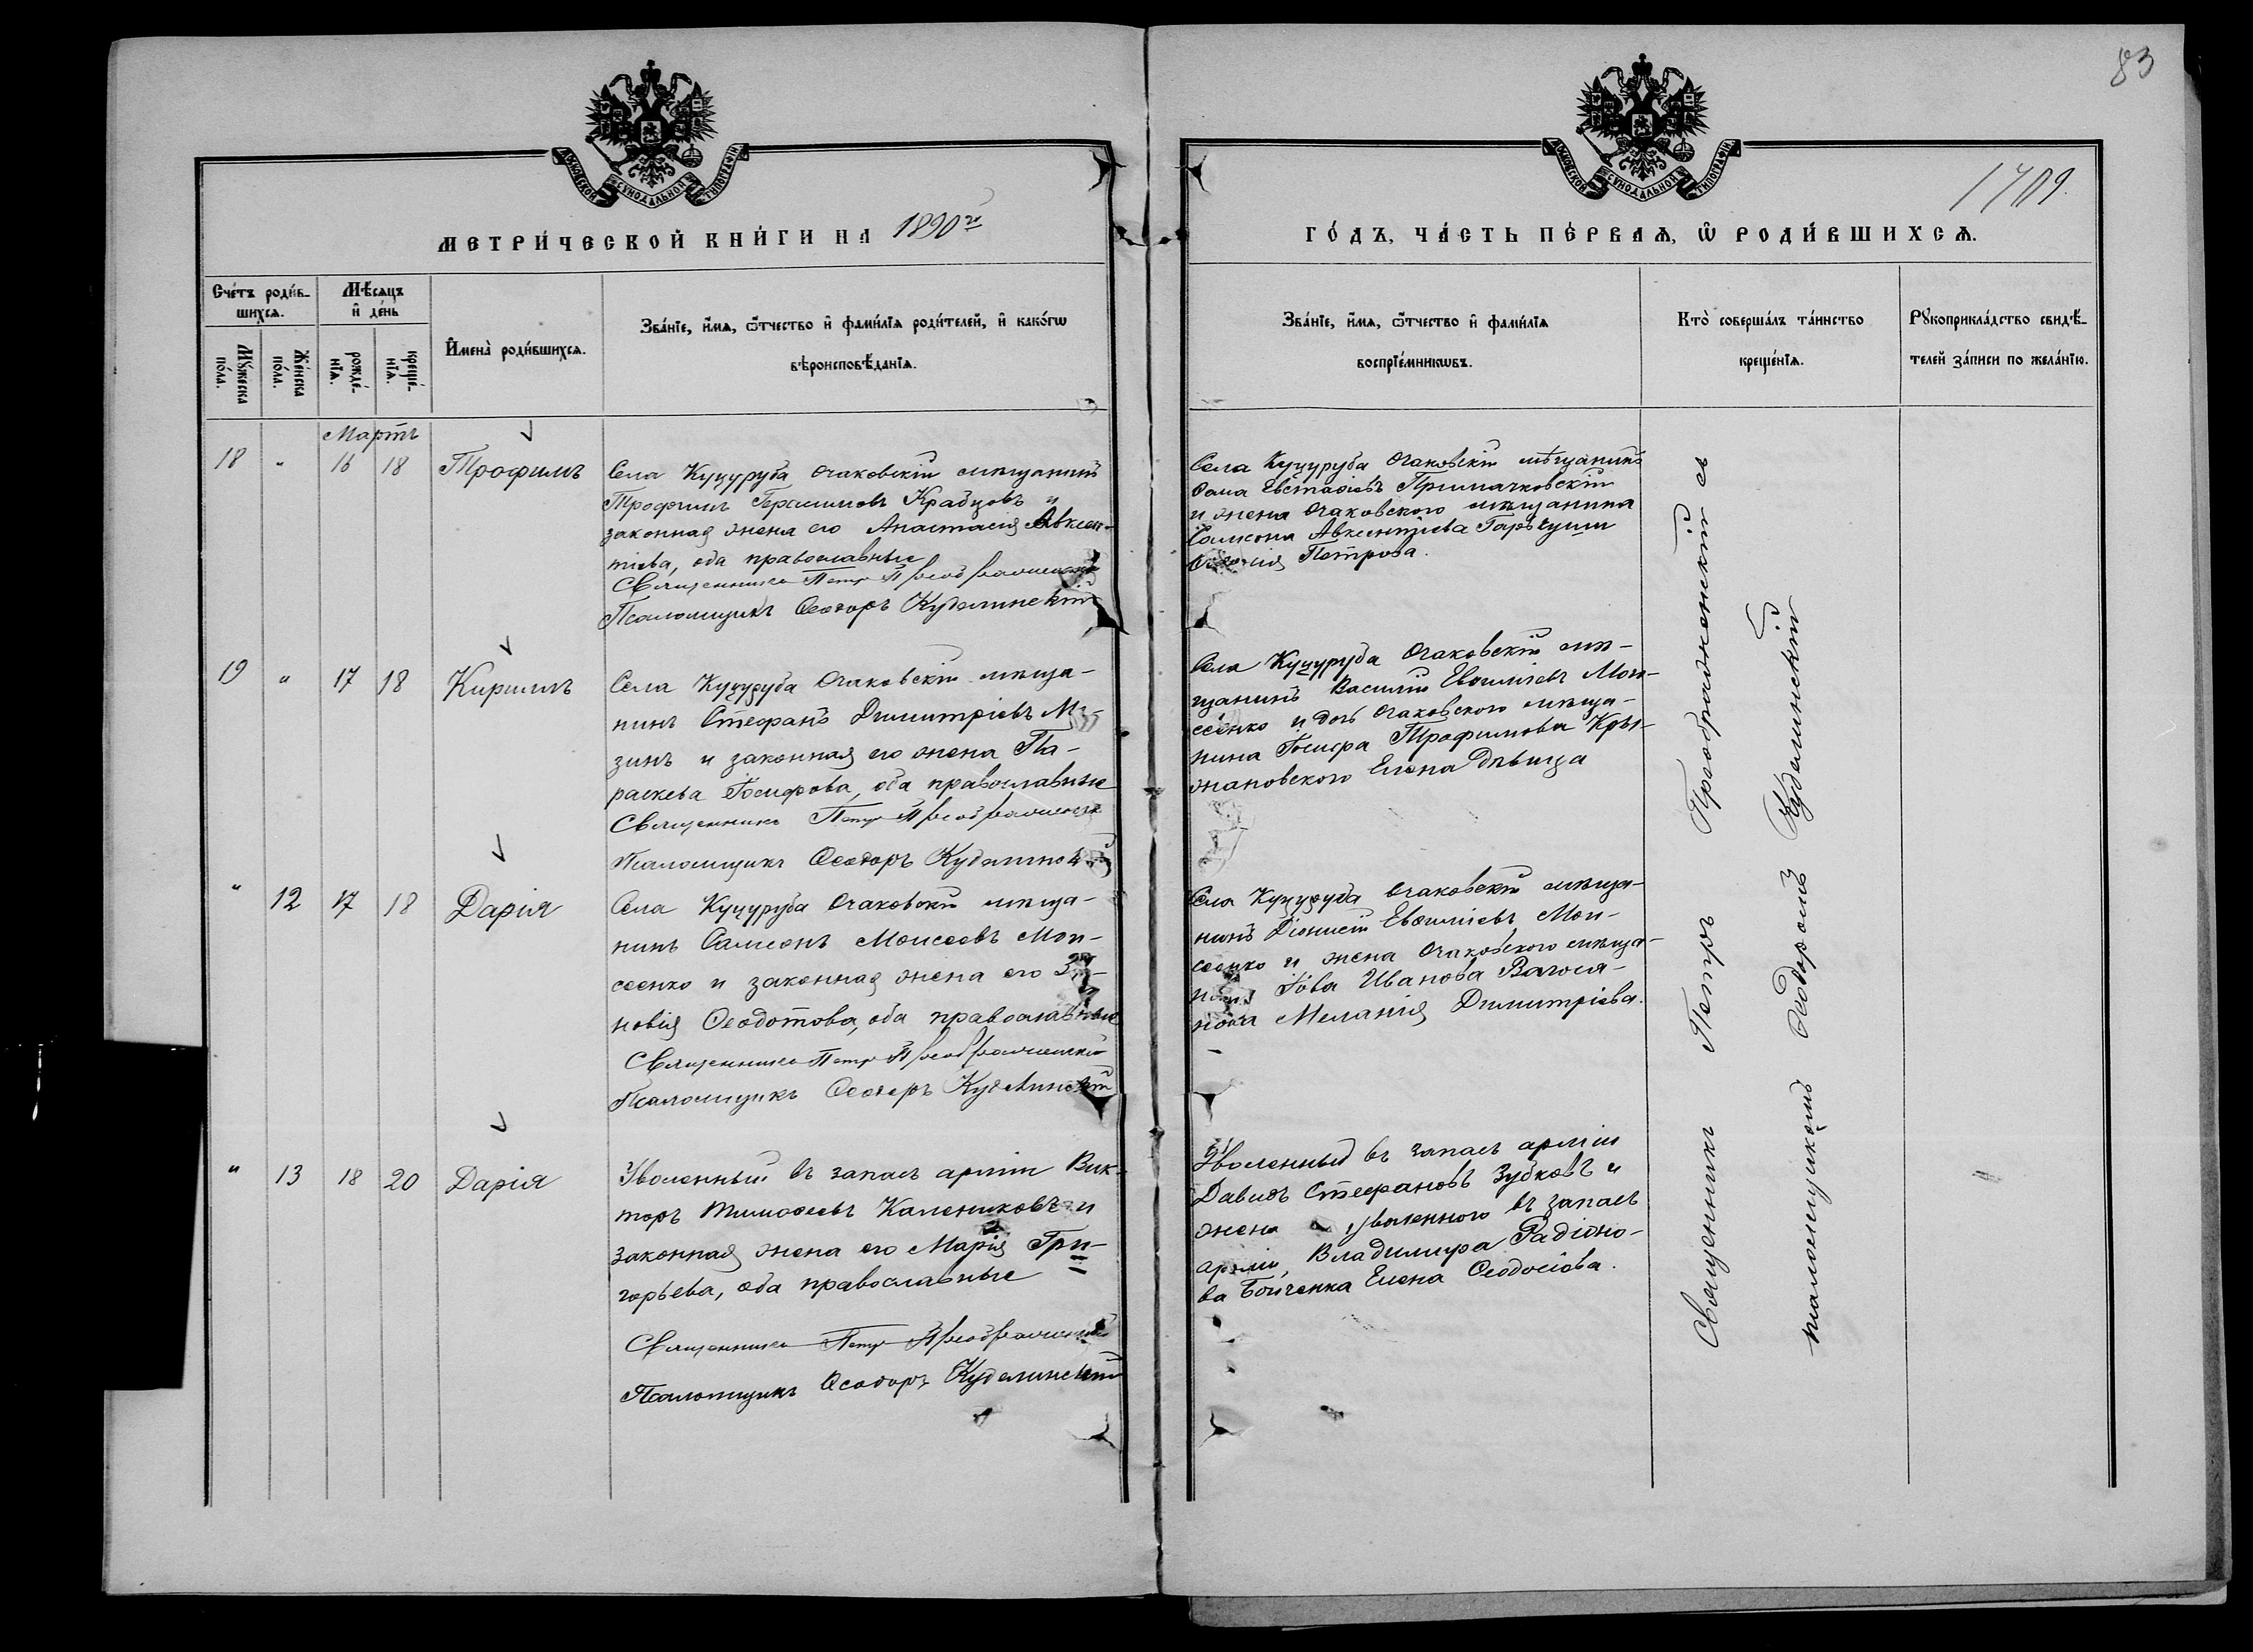 83
МОСКОВСКОЙ СѴНОДАЛЬНОЙ ТИПОГРАФІИ
МОСКОВСКОЙ СѴНОДАЛЬНОЙ ТИПОГРАФІИ
1709.
МЕТРИ́ЧЕСКОЙ КНИ́ГИ НА 1890 г
ГО́ДЪ, ЧА́СТЬ ПЕ́РВАѦ, Ѡ҆ РОДИ́ВШИХСѦ.
Сче́тъ роди́в-
шихсѧ.
Мѣ́сѧцъ
и҆ де́нь
Мꙋ́жеска
по́ла.
Же́нска
по́ла.
рожде́-
нїѧ.
креще́-
нїѧ.
И҆мена̀ роди́вшихсѧ.
Зва́нїе, и҆́мѧ, ѻ҆́тчество и҆ фами́лїѧ роди́телей, и҆ како́гѡ
вѣроисповѣ́данїѧ.
Зва́нїе, и҆́мѧ, ѻ҆́тчество и҆ фами́лїѧ
воспрїе́мникѡвъ.
Кто̀ соверша́лъ та́инство
креще́нїѧ.
Рꙋкоприкла́дство свидѣ́-
телей за́писи по жела́нїю.
Мартъ
18 " 16 18 Трофимъ
Села Куцуруба Очаковскій мѣщанинъ
Трофимъ Герасимовъ Кравцовъ и
законная жена его Анастасія Авксен-
тіева, оба православные
Священникъ Петръ Преображенскій
Псаломщикъ Ѳеодоръ Куделинскій
Села Куцуруба Очаковскій мѣщанинъ
Ѳома Евстаѳіевъ Примачковскій
и жена Очаковскаго мѣщанина
Самсона Авксентіева
Петрова.
19 " 17 18 Кириллъ
Села Куцуруба Очаковскій мѣща-
нинъ Стефанъ Димитріевъ
зинъ и законная его жена Па-
раскева Іосифова, оба православные
Священникъ Петръ Преображенскій
Псаломщикъ Ѳеодоръ Куделинскій
Села Куцуруба Очаковскій мѣ-
щанинъ Василій Евѳиміевъ Мои-
сеенко и дочь Очаковскаго мѣща-
нина Іосифа Трофимова Кры-
жановскаго Елена дѣвица
" 12 17 18 Дарія
Села Куцуруба Очаковскій мѣща-
нинъ Самсонъ Моисеевъ Мои-
сеенко и законная жена его Зи-
новія Ѳеодотова, оба православные
Священникъ Петръ Преображенскій
Псаломщикъ Ѳеодоръ Куделинскій
Села Куцуруба Очаковскій мѣща-
нинъ Діонисій Евѳиміевъ Мои-
сеенко и жена Очаковскаго мѣща-
нина Іова Иванова
Меланія Димитріева.
" 13 18 20 Дарія
Уволенный въ запасъ арміи Вик-
торъ Тимоѳеевъ Калениковъ и
законная жена его Марія Гри-
горьева, оба православные
Священникъ Петръ Преображенскій
Псаломщикъ Ѳеодоръ Куделинскій
Уволенный въ запасъ арміи
Давидъ Стефановъ Зубковъ и
жена уволеннаго въ запасъ
арміи, Владимира Радіоно-
ва Бойченка Елена Ѳеодосіева.
Священникъ Петръ Преображенскій съ
псаломщикомъ Ѳеодоромъ Куделинскій